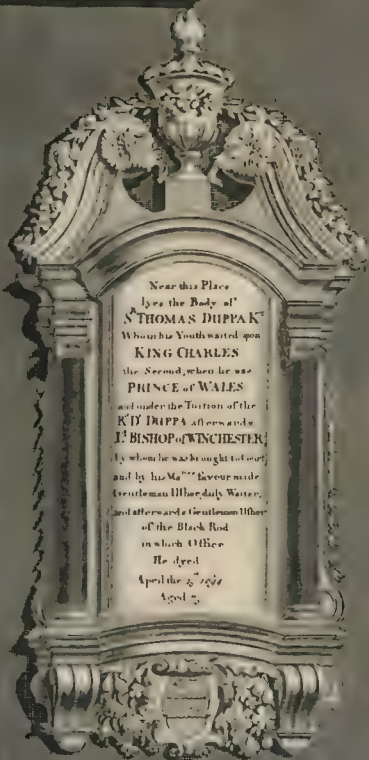 Near this Place
lyes the Body of
Sr. THOMAS DUPPA Kt.
Who in his Youth waited upon
KING CHARLES
the Second, when he was
PRINCE of WALES
and under the Tuition of the
Rt. Dr. DUPPA afterwards
Ld. BISHOP of WINCHESTER,
by whom he was brought to court,
and by his Maties favour made
Gentleman Usher, daily Waiter,
and afterwards Gentleman Usher
of the Black Rod
in which Office
He dyed
April the
Aged